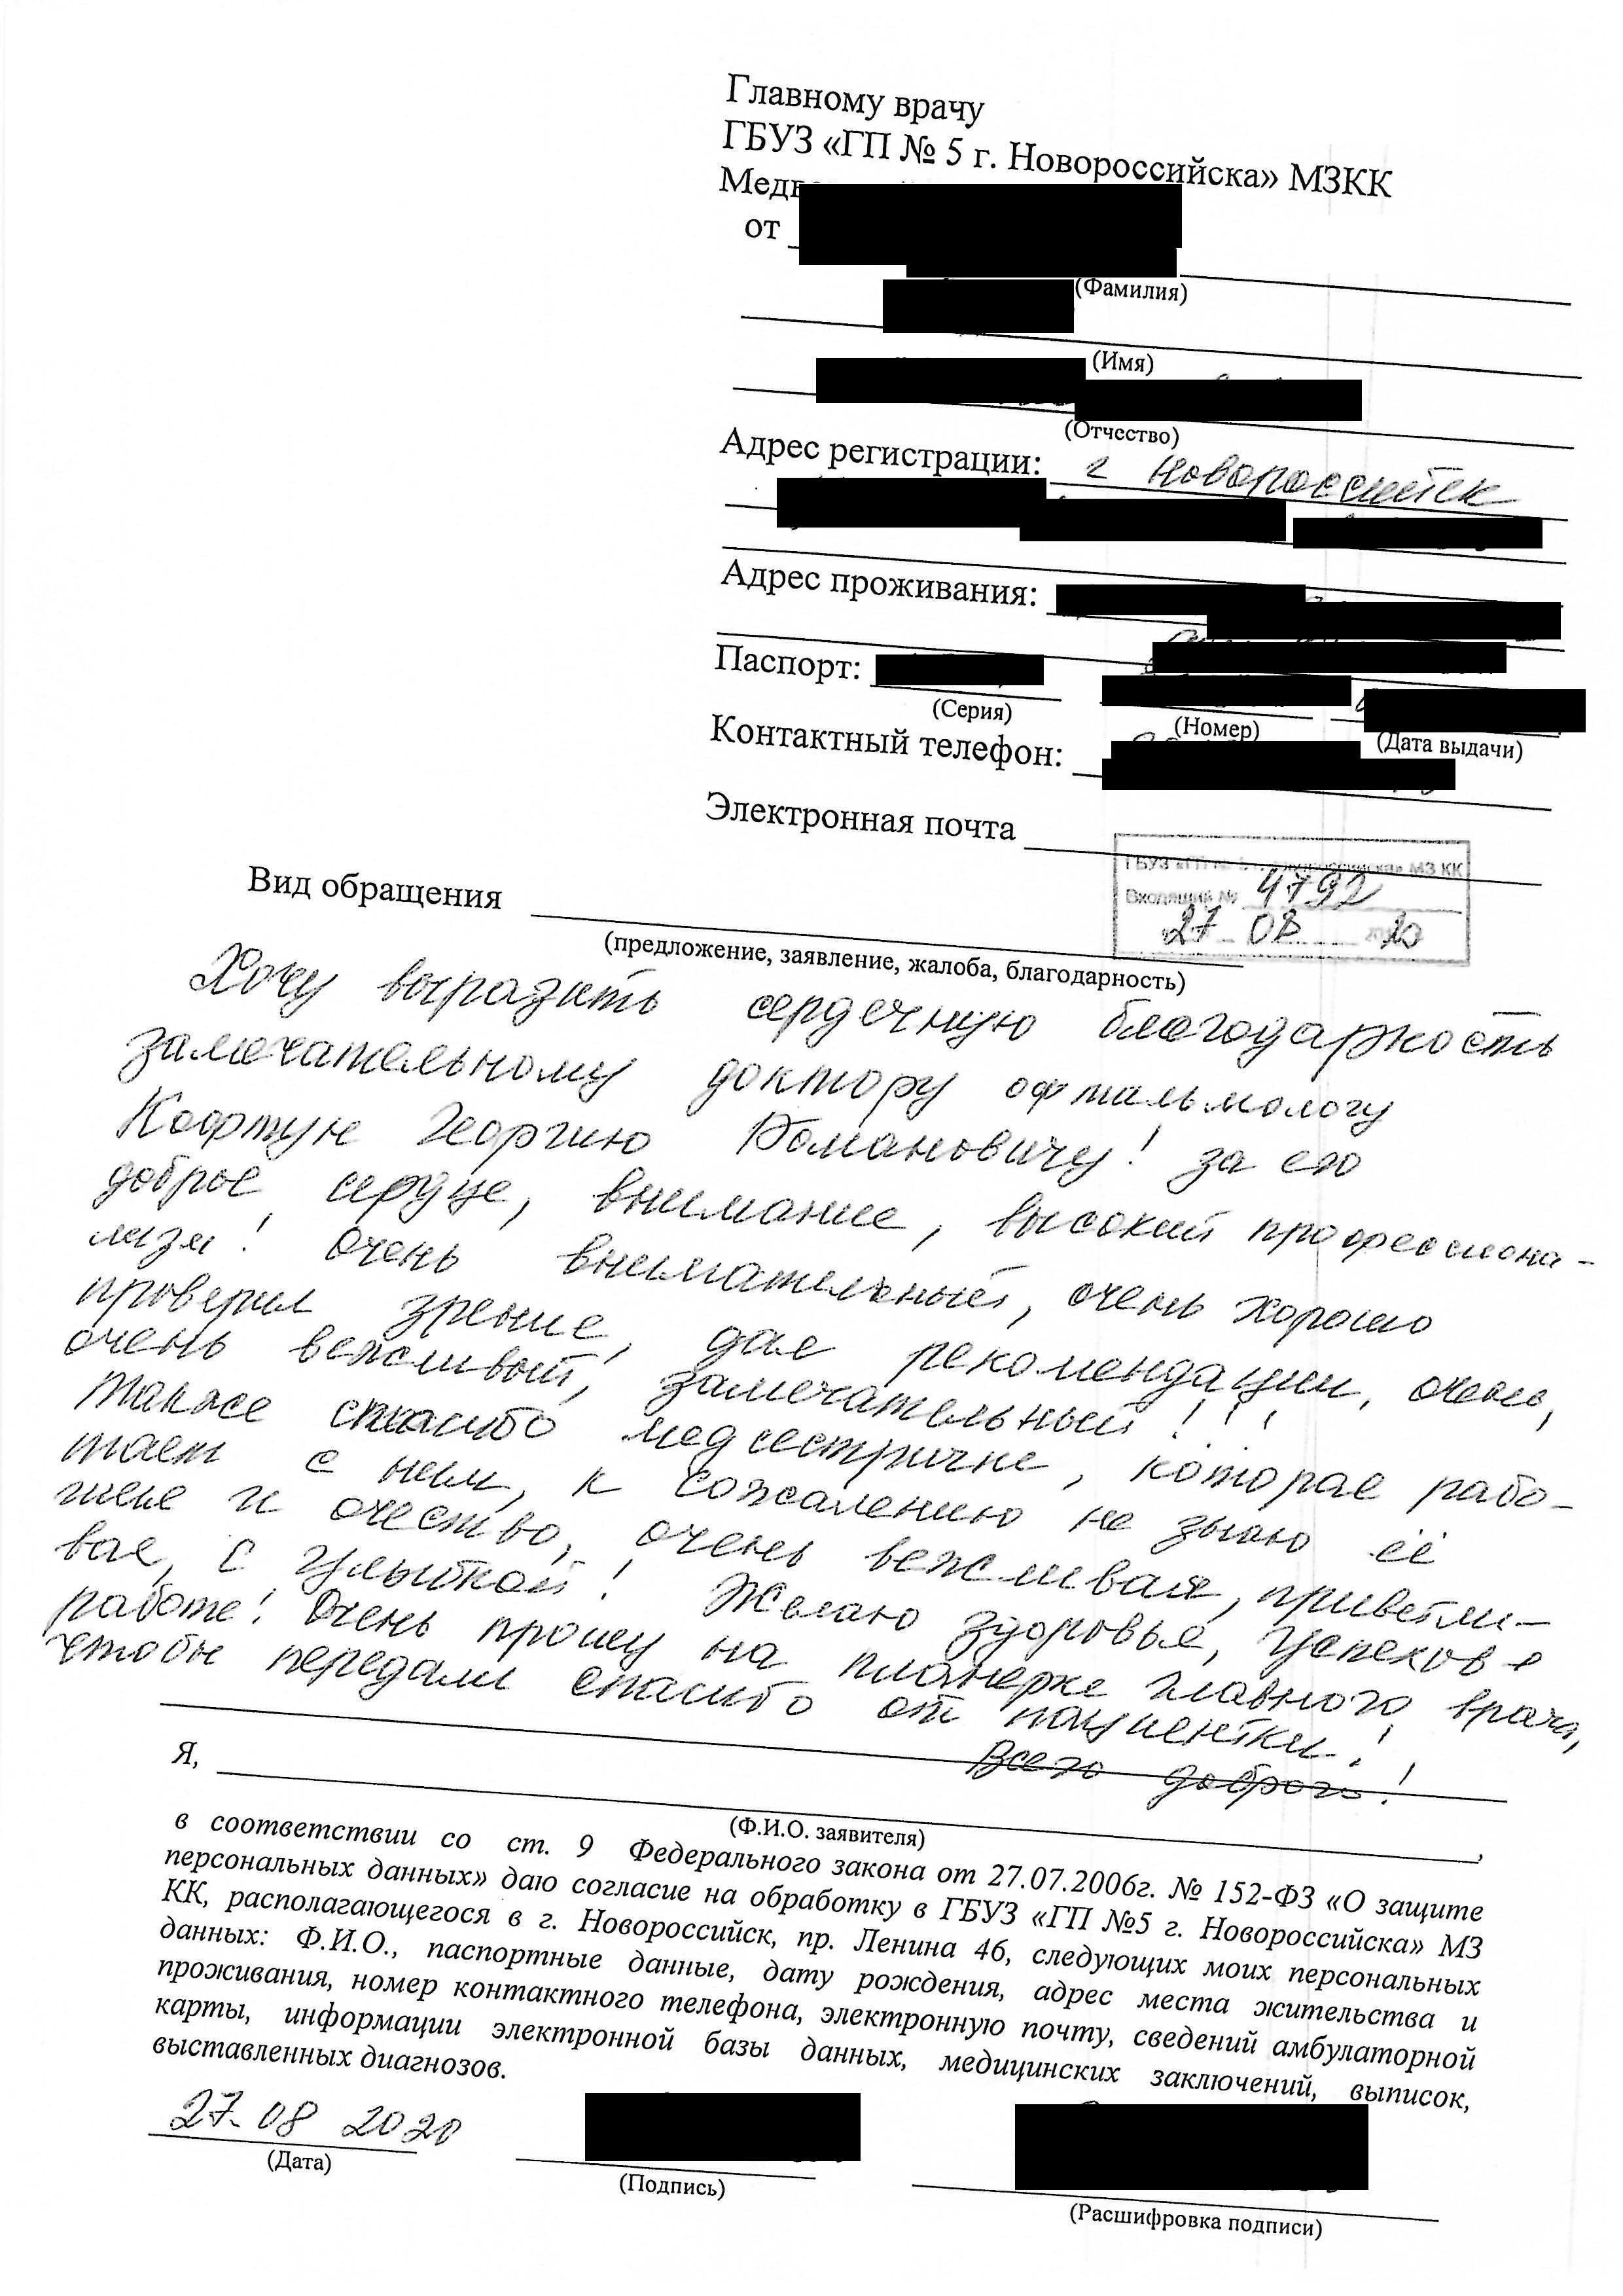 Главному врачу
ГБУЗ «ГП № 5 г. Новороссийска» МЗКК
от
(Фамилия)
(Имя)
(Отчество)
Адрес регистрации: г Новороссийск
Адрес проживания:
Паспорт:
(Серия) (Номер) (Дата выдачи)
Контактный телефон:
Электронная почта
ГБУЗ «ГП № 5 г. Новороссийска» МЗ КК
Входящий № 4792
27 08 2020
Вид обращения
(предложение, заявление, жалоба, благодарность)
Хочу выразить сердечную благодарность
замечательному доктору офтальмологу
Кофтун Георгию Романовичу! за его
доброе сердце, внимание, высокий профессиона-
лизм! Очень внимательный, очень хорошо
проверил зрение, дал рекомендации, очень,
очень вежливый, замечательный!!!
Также спасибо медсестричке, которая рабо-
тает с ним, к сожалению не знаю её
имя и очество, очень вежливая, приветли-
вая, с улыбкой! Желаю здоровья, успехов в
работе! Очень прошу на планерке главного врача,
чтобы передали спасибо от пациентки!
Всего доброго!
Я,
(Ф.И.О. заявителя)
в соответствии со ст. 9 Федерального закона от 27.07.2006г. № 152-ФЗ «О защите
персональных данных» даю согласие на обработку в ГБУЗ «ГП №5 г. Новороссийска» МЗ
КК, располагающегося в г. Новороссийск, пр. Ленина 46, следующих моих персональных
данных: Ф.И.О., паспортные данные, дату рождения, адрес места жительства и
проживания, номер контактного телефона, электронную почту, сведений амбулаторной
карты, информации электронной базы данных, медицинских заключений, выписок,
выставленных диагнозов.
27-08 2020
(Дата) (Подпись) (Расшифровка подписи)